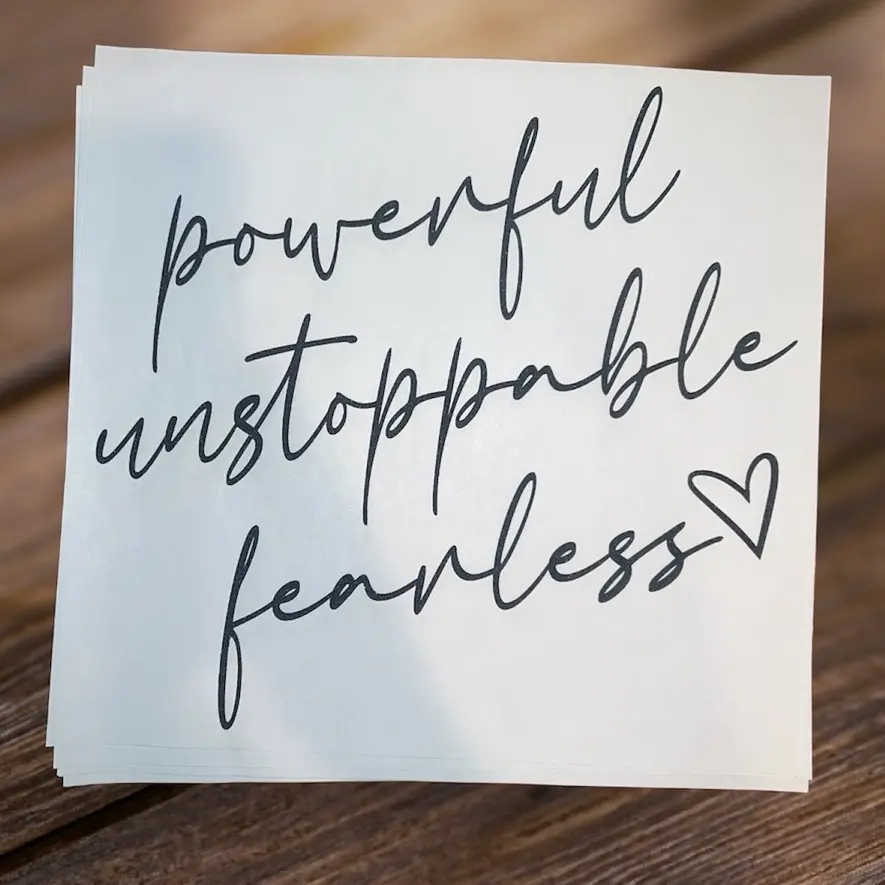 powerful
unstoppable
fearless